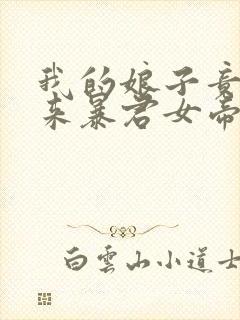 我的娘子竟
来暴君女帝
白雲山小道士